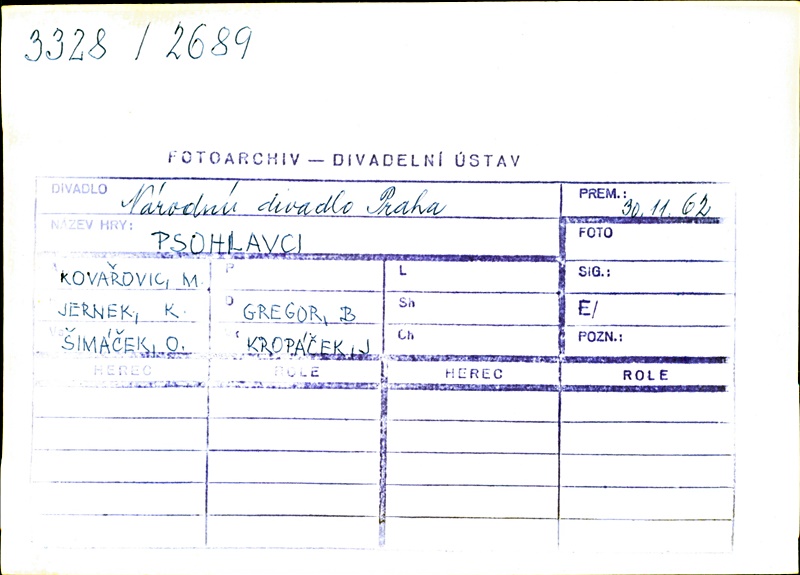 3328 / 2689
FOTOARCHIV — DIVADELNÍ ÚSTAV
DIVADLO Národní divadlo Praha PREM.: 30. 11. 62
NÁZEV HRY: PSOHLAVCI FOTO
KOVAŘOVIC, M. P L SIG.:
JERNEK, K. D GREGOR, B Sh E/
ŠIMÁČEK, O. KROPÁČEK, J Ch POZN.:
HEREC ROLE HEREC ROLE